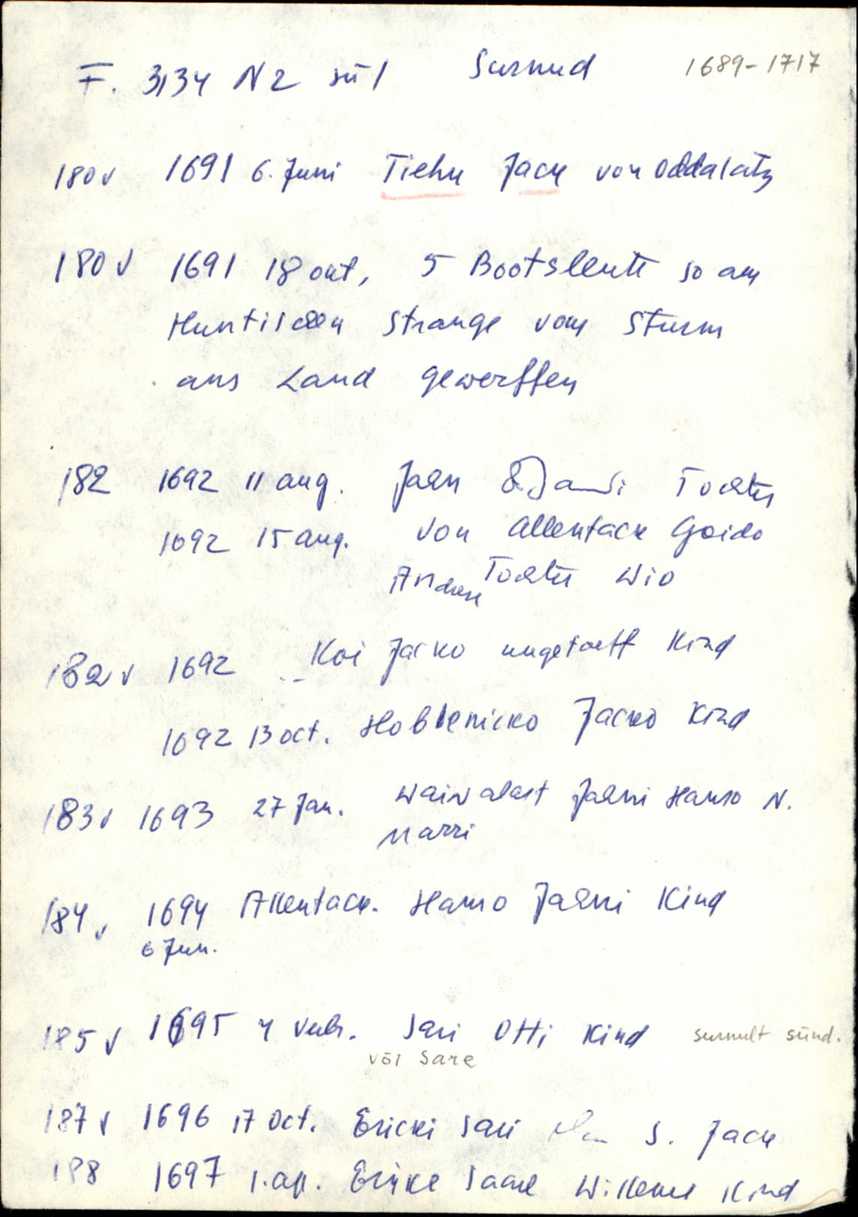 F. 3134 N2 sü 1 Surnud 1689-1717
180v 1691 6. Juni Tiehu Jack von Oddalatz
180v 1691 18 okt, 5 Bootsleute so am
Huntischen Strange vom Sturm
ans Land gewerffen
182 1692 11 aug. Jaen Tochter
1692 15 aug. von Allentack Goido
Andres Tochter Wio
182v 1692 Koi Jacko ungetoefft Kind
1692 13 oct. Jacko Kind
183v 1693 27 Jan. Waiwalast Hanso N.
Marri
184v 1694 Allentack. Hanso Kind
6 Jun.
185v 1695 4 Sari Otti Kind surnult sünd.
või Sare
187v 1696 17 Oct. Ericki Sari S. Jack
188 1697 1. ap. Saare Willemi Kind